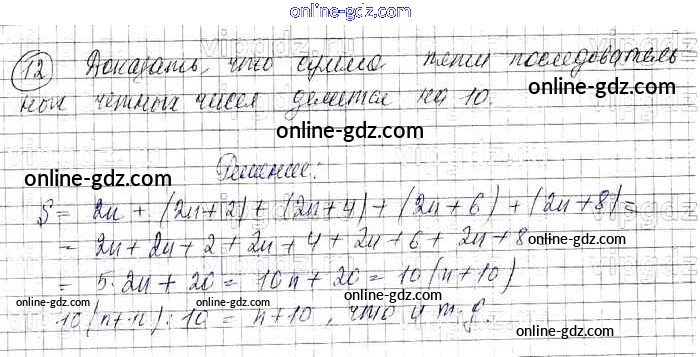 online-gdz.com
12 Доказать, что сумма пяти последователь
online-gdz.com
ных чётных чисел делится на 10.
online-gdz.com
online-gdz.com
Решение:
S = 2n + (2n+2) + (2n+4) + (2n+6) + (2n+8) =
online-gdz.com
= 2n + 2n + 2 + 2n + 4 + 2n + 6 + 2n + 8
online-gdz.com
= 5·2n + 20 = 10n + 20 = 10(n+10)
online-gdz.com online-gdz.com
: 10 = n+10, что и т.д.
online-gdz.com